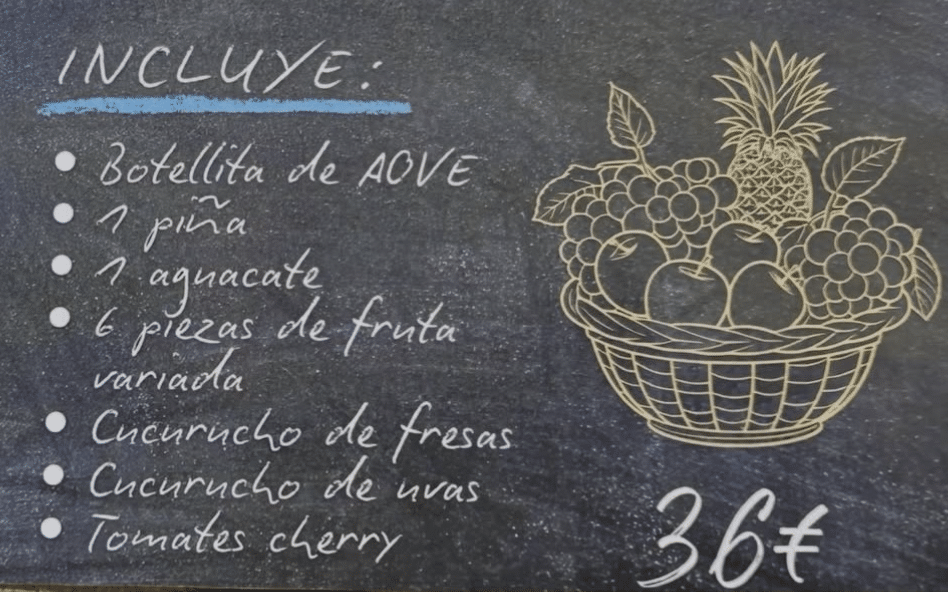 INCLUYE:
• Botellita de AOVE
• 1 piña
• 1 aguacate
• 6 piezas de fruta
variada
• Cucurucho de fresas
• Cucurucho de uvas
• Tomates cherry
36€